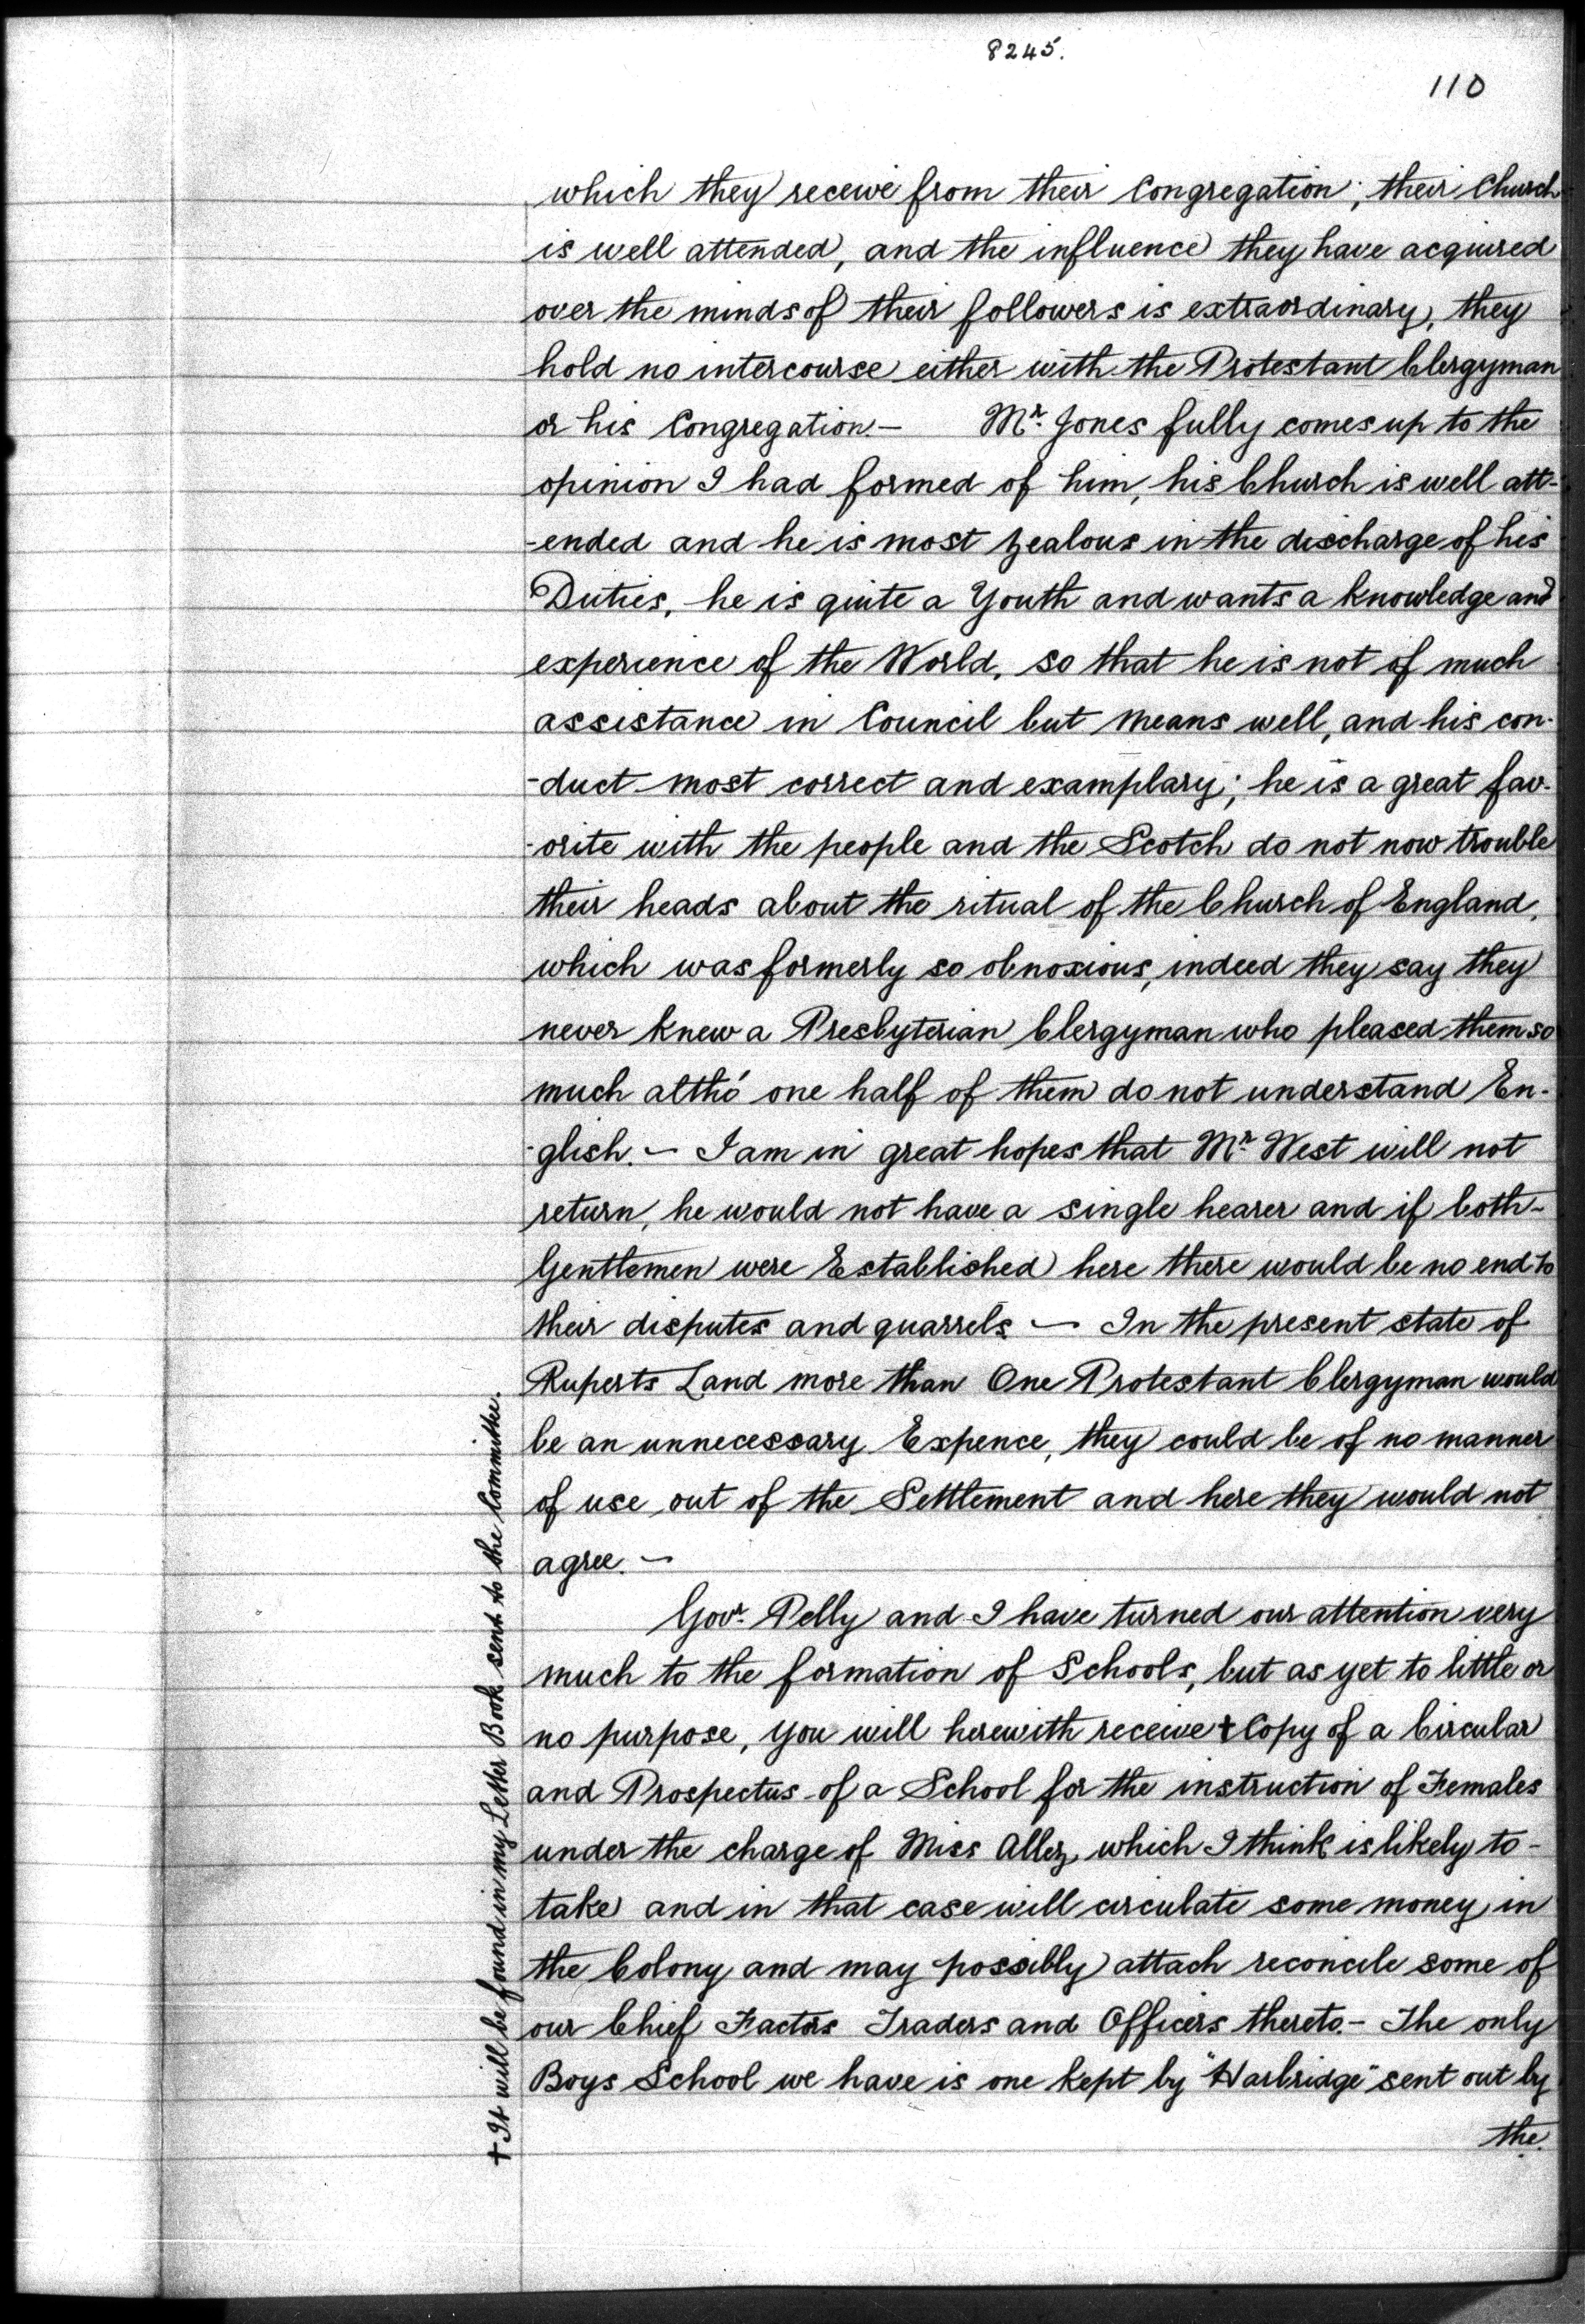 8245.
110
which they receive from their Congregation; their Church
is well attended, and the influence they have acquired
over the minds of their followers is extraordinary, they
hold no intercourse either with the Protestant Clergyman
or his Congregation.— Mr. Jones fully comes up to the
opinion I had formed of him, his Church is well att-
-ended and he is most zealous in the discharge of his
Duties, he is quite a Youth and wants a knowledge and
experience of the World, so that he is not of much
assistance in Council but means well, and his con-
-duct most correct and examplary; he is a great fav-
-orite with the people and the Scotch do not now trouble
their heads about the ritual of the Church of England,
which was formerly so obnoxious, indeed they say they
never knew a Presbyterian Clergyman who pleased them so
much altho' one half of them do not understand En-
-glish.— I am in great hopes that Mr. West will not
return, he would not have a single hearer and if both-
Gentlemen were Established here there would be no end to
their disputes and quarrels — In the present state of
Ruperts Land more than One Protestant Clergyman would
be an unnecessary Expence, they could be of no manner
of use out of the Settlement and here they would not
agree.—
Govr. Pelly and I have turned our attention very
much to the formation of Schools, but as yet to little or
no purpose, you will herewith receive + Copy of a Circular
and Prospectus of a School for the instruction of Females
under the charge of Miss Allez, which I think is likely to-
take and in that case will circulate some money in
the Colony and may possibly attach reconcile some of
our Chief Factors Traders and Officers thereto.— The only
Boys School we have is one kept by "Harbridge" sent out by
the.
+ It will be found in my Letter Book sent to the Committee.